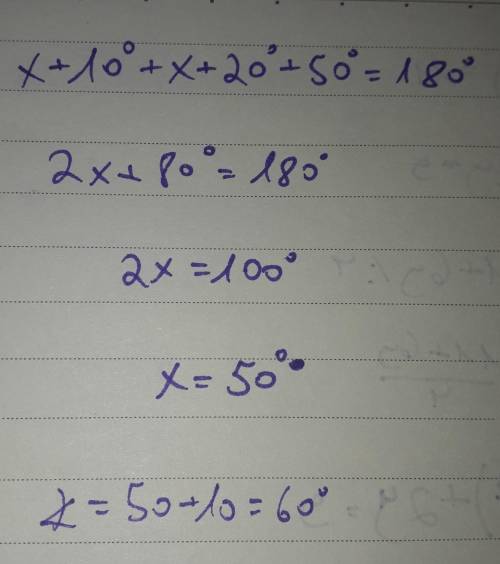 x+10°+x+20°+50°=180°
2x+80°=180°
2x=100°
x=50°
x=50+10=60°